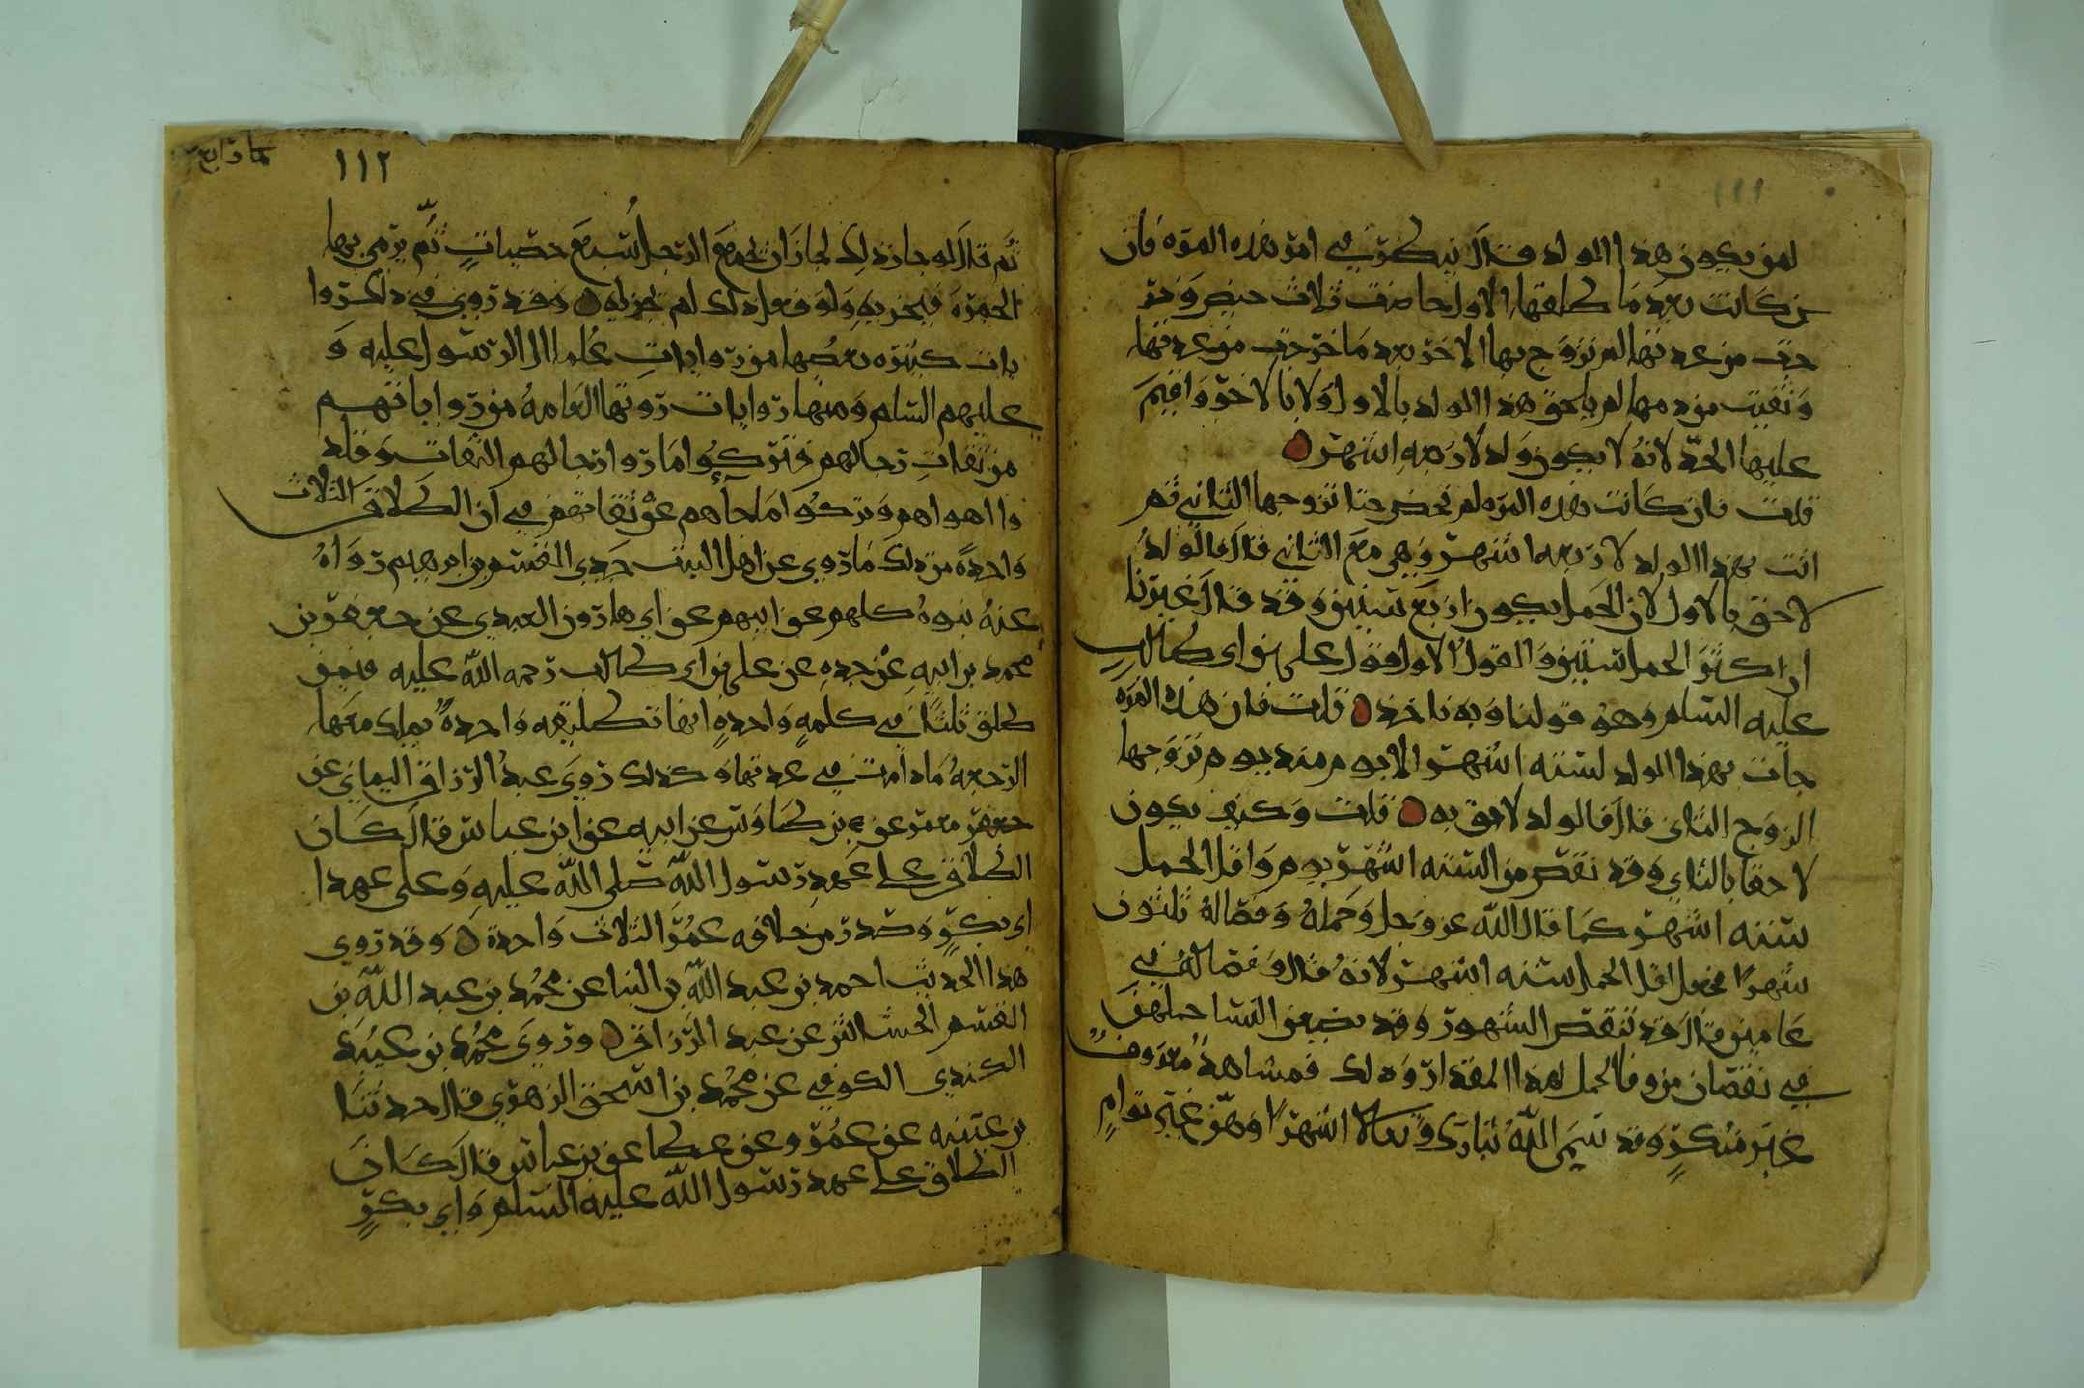 ١١١
لمن يكون هذا الولد قال ينظر في امر هذه المره فان
كانت بعد ما طلقها الاول حاضت ثلاث حيض وخر
جت من عدتها ثم تزوج بها الاخر بعد ما خرجت من عدتها
ونقيت من دمها لم يلحق هذا الولد بالاول ولا بالاخر واقيم
عليها الحد لانه لا يكون ولد لاربعه اشهر
قلت فان كانت هذه المره لم تحض حتا تزوجها الثاني ثم
اتت بهذا الولد لاربعه اشهر وهي مع الثاني قال فالولد
لاحق بالاول لان الحمل يكون اربع سنين وقد قال غيرنا
ان اكثر الحمل سنتين والقول الاول قول علي بن ابي طالب
عليه السلم وهو قولنا وبه ناخذ قلت فان هذه المره
جات بهذا الولد لسته اشهر الا يوم منذ يوم تزوجها
الزوج الثاني قال فالولد لاحق به قلت وكيف يكون
لاحقا بالثاني وقد نقص من السته اشهر يوم واقل الحمل
سته اشهر كما قال الله عز وجل وحمله وفصاله ثلثون
شهرا فجعل اقل الحمل سته اشهر لانه قال وفصاله في
عامين قال قد تنقص الشهور وقد يضعن النسا حملهن
في نقصان من وفا الحمل لهذا المقدار وذلك فمشاهد معروف
غير منكر وقد سمى الله تبارك وتعالا اشهرا وهن غير توام
١١٢
ثم قال لو جاز ذلك لجاز ان يجمع الرجل سبع حصيات ثم يرمي بها
الجمره فيجزيه ولو فعل ذلك لم يجزيه وقد روي في ذلك روا
يات كثيره بعضها من روايات علما ال الرسول عليه و
عليهم السلم ومنها روايات روتها العامه من رواياتهم
من ثقات رجالهم فتركوا ما روا رجالهم الثقات وقلد
وا اهواهم وتركوا ما جاهم عن ثقاتهم في ان الطلاق الثلاث
واحدة من ذلك ما روي عن اهل البيت جدي القسم بن ابرهيم رواه
عنه بنوه كلهم عن ابيهم عن ابي هارون العبدي عن جعفر بن
محمد بن ابيه عن جده عن علي بن ابي طالب رحمه الله عليه فيمن
طلق ثلثا في كلمه واحده انها تطليقه واحدة يملك معها
الرجعه ما دامت في عدتها وكذلك روى عبد الرزاق اليماني عن
معمر عن بن طاوس عن ابيه عن ابن عباس قال كان
الطلاق على عهد رسول الله صلى الله عليه وعلى عهد ا
بي بكر وصدر من خلافه عمر الثلاث واحدة وقد روي
هذا الحديث احمد بن عبد الله بن البنا عن محمد بن عبد الله بن
القسم عن عبد الرزاق وروى محمد بن عبيد
الكندي الكوفي عن محمد بن اسحق الزهري قال حدثنا
عن عمر وعن عطا عن بن عباس قال كان
الطلاق على عهد رسول الله عليه السلم وابي بكر